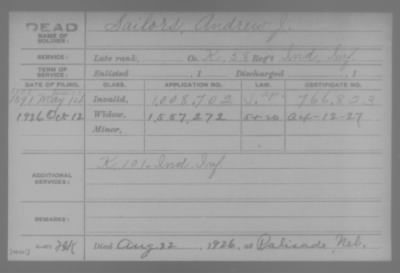 DEAD
NAME OF SOLDIER: Sailors, Andrew J.
SERVICE: Late rank, Co. K, 58 Reg't Ind. Inf.
TERM OF SERVICE: Enlisted , 1 Discharged , 1
DATE OF FILING. CLASS. APPLICATION NO. LAW. CERTIFICATE NO.
1891 May 12 Invalid, 1,008,702 766,823
1926 Oct 12 Widow, 1,557,272 A-4-12-27
Minor,
ADDITIONAL SERVICES: K. 101 Ind. Inf.
REMARKS:
Died Aug 22, 1926, at Palisade, Neb.